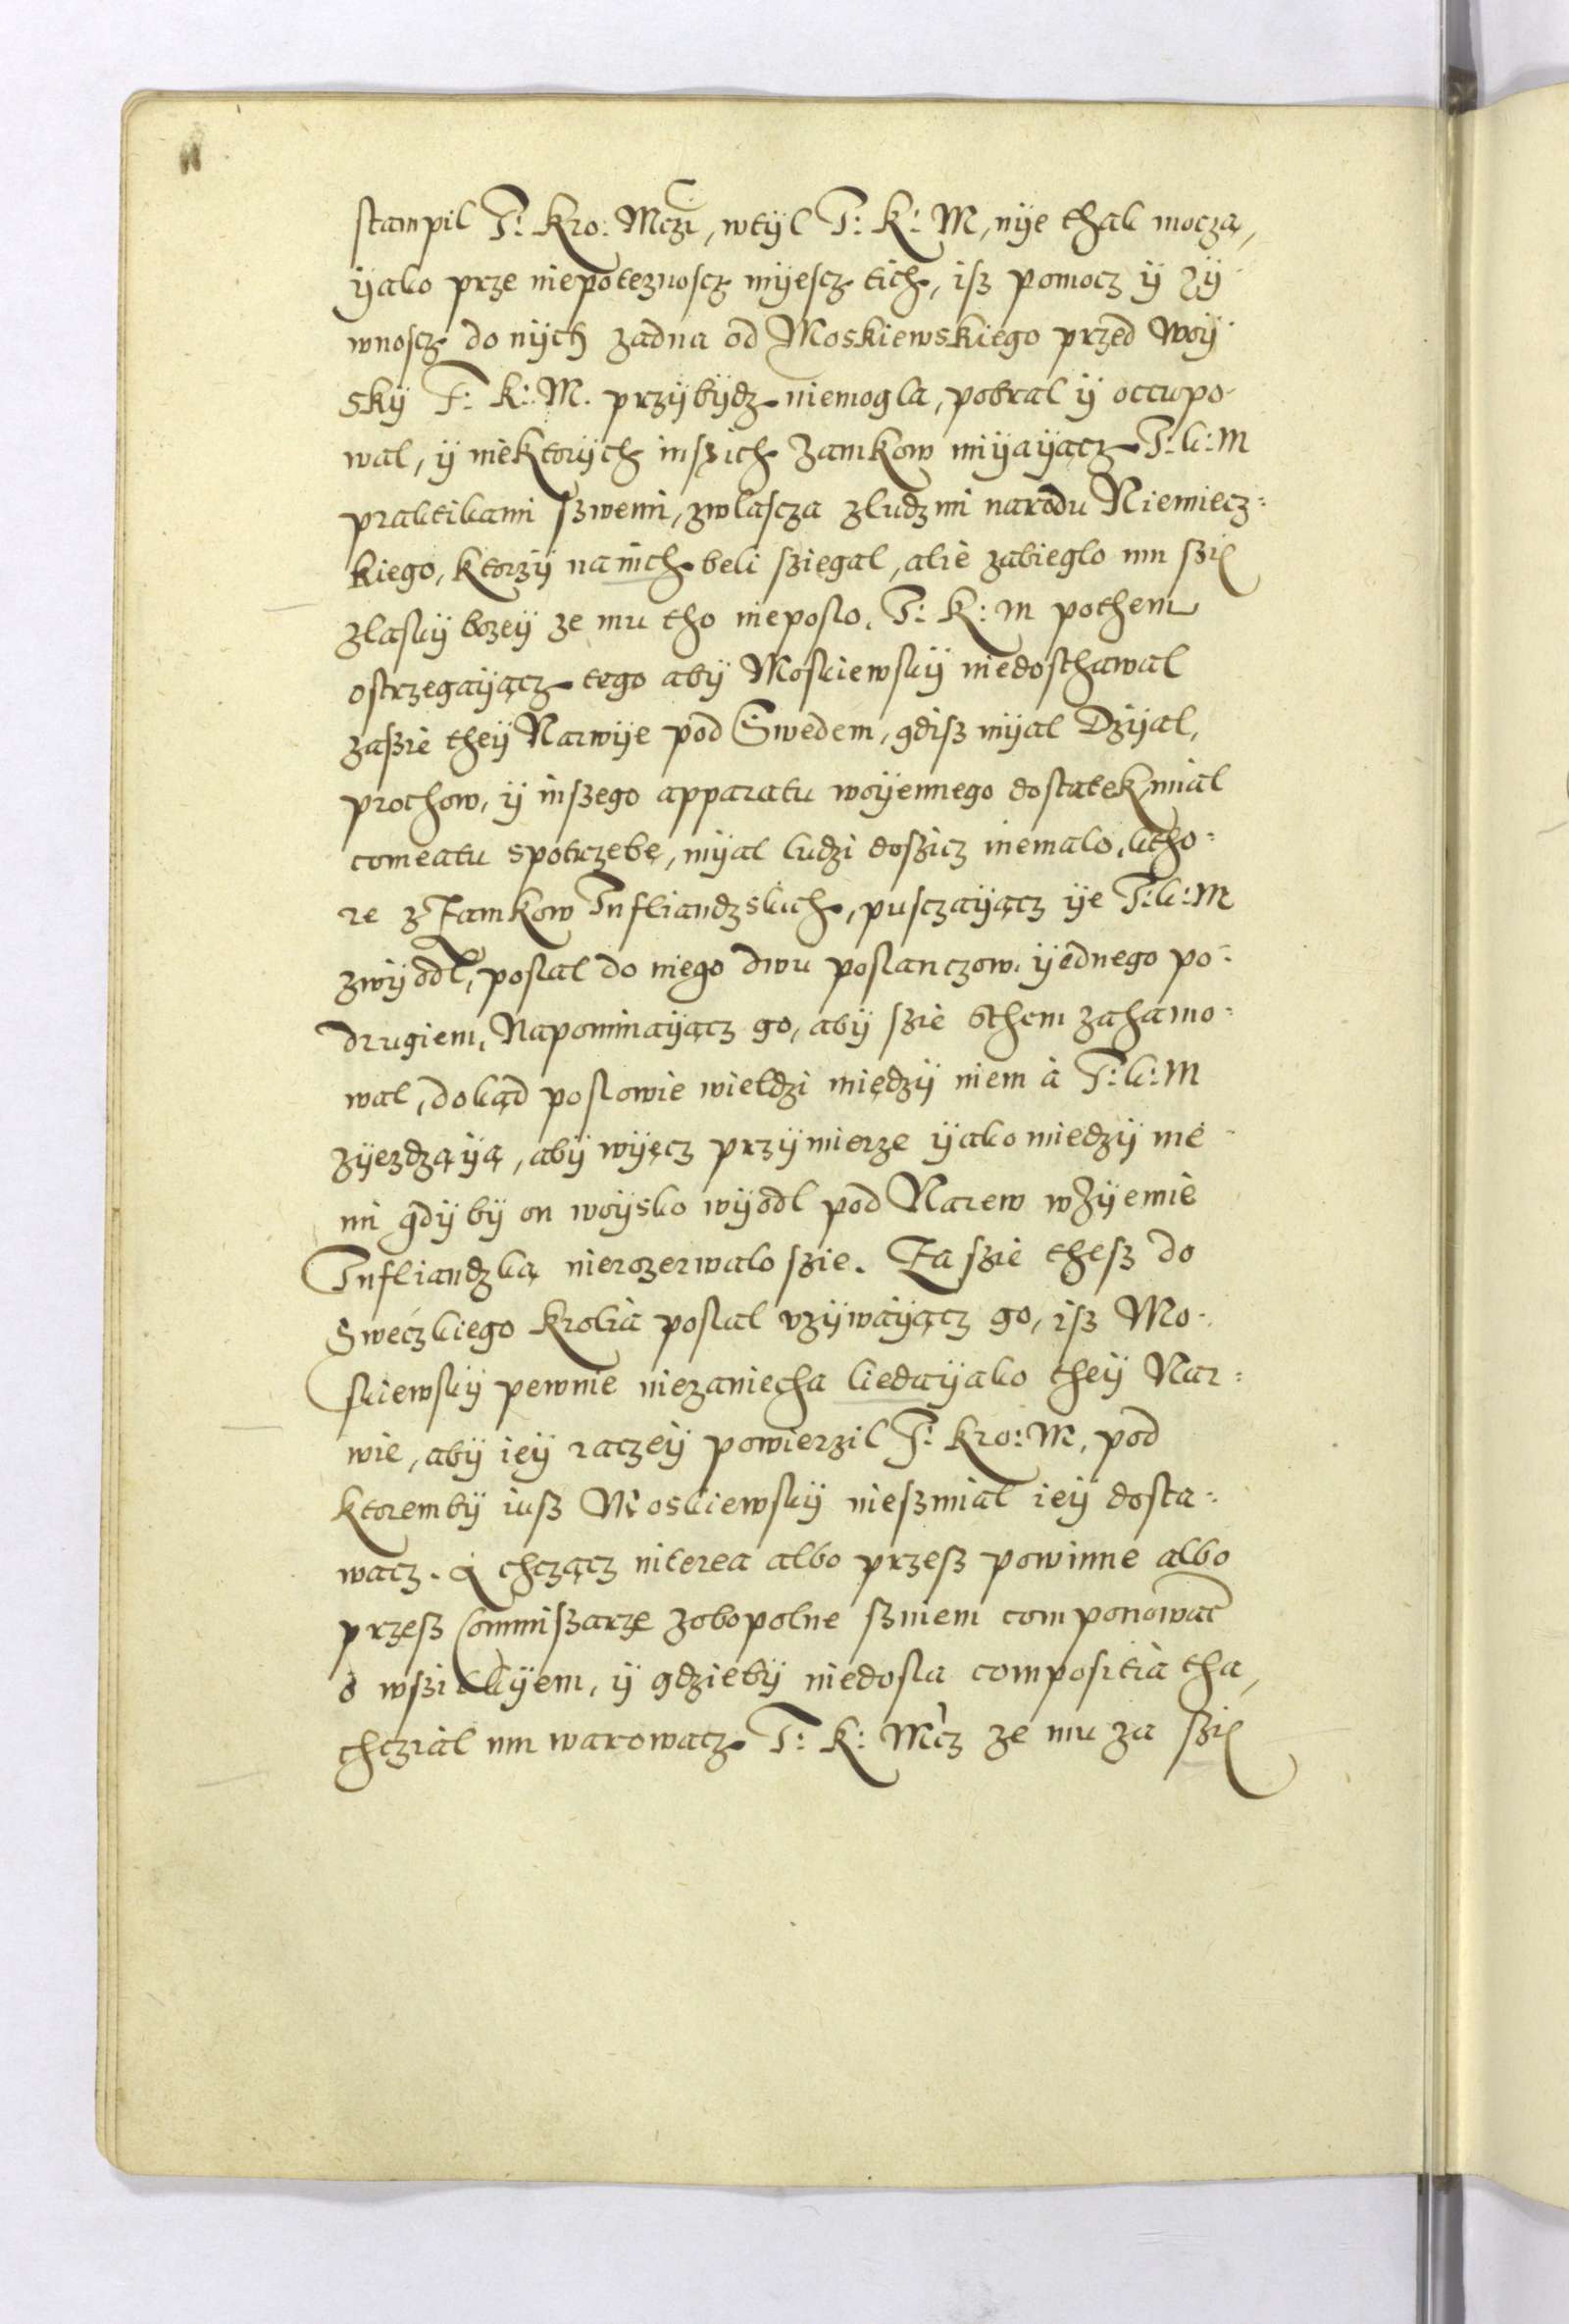 stampil J: Kro: Mczi, wtÿl J: K: M, nÿe thak moczą,
ÿako prze niepoteznoscz mÿescz tich, isz pomocz ÿ zÿ-
wnoscz do nÿch zadna od Moskiewskiego przed woÿ-
skÿ J: K: M. przÿbÿdz niemogla, pobral ÿ occupo-
wal, ÿ niektorÿch inszich Zamkow miÿaÿącz J: k: M
praktikami szwemi, zwlascza zludzmi narodu Niemiecz=
kiego, ktorzÿ na nich beli sziegal, alie zabieglo mu szię
zlaskÿ bozeÿ ze mu tho nieposlo. J: K: M pothem
ostrzegaÿącz tego abÿ Moskiewskÿ niedosthawal
zaszie theÿ Narwÿe pod Swedem, gdisz mÿal Dzÿal,
prochow, ÿ inszego apparatu woÿennego dostatek, mial
comeatu spotrzebę, mÿal ludzi doszicz niemalo, ktho=
re z Zamkow Infliandzskich, pusczaÿącz ÿe J: k: M
zwÿodl, poslal do niego dwu poslanczow, ÿednego po=
drugiem, Napominaÿącz go, abÿ szie othem zahamo=
wal, dokąd poslowie wieldzi międzÿ niem à J: k: M
zÿezdząÿą, abÿ wÿęcz przÿmierze ÿako miedzÿ nie-
mi gdÿbÿ on woÿsko wÿodl pod Narew wZÿemie
Infliandzką nierozerwalo szie. Zaszie thesz do
Sweczkiego Krolia poslal uzÿwaÿącz go, isz Mo-
skiewskÿ pewnie niezaniecha kiedaÿako theÿ Nar=
wie, abÿ ieÿ raczeÿ powierzil J: Kro: M, pod
ktorembÿ iusz Moskiewskÿ nieszmial ieÿ dosta=
wacz. A chcząc interea albo przesz powinne albo
przesz Commiszarze zobopolne szniem componowac
o wszitkÿem, ÿ gdziebÿ niedosla compositia tha,
chczial mu warowacz J: K: Mcz ze mu za szię